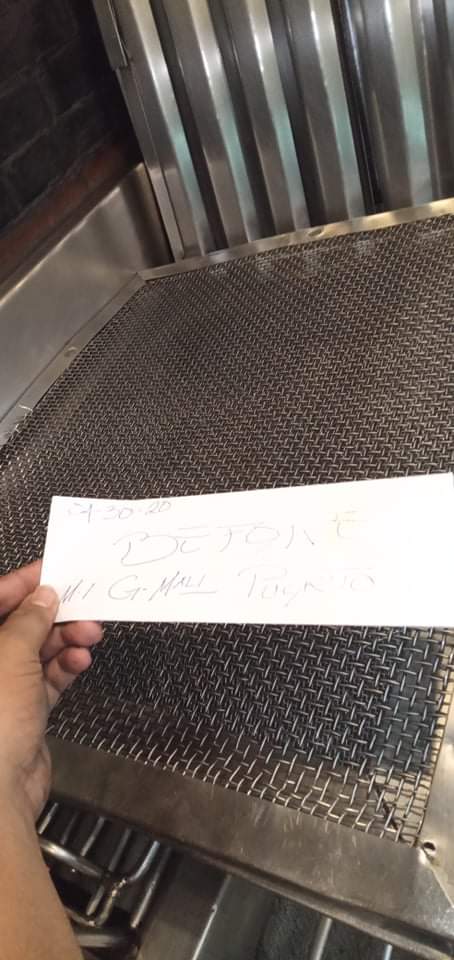 4-30-20
BEFORE
M.I G-MALL PUYATO